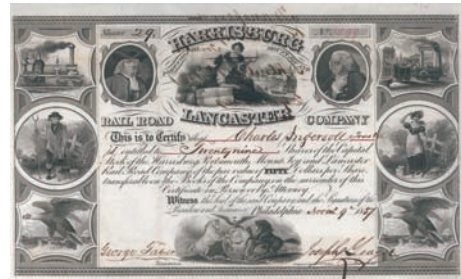 Shares 29
HARRISBURG
LANCASTER
RAIL ROAD COMPANY
This is to Certify that Charles Ingersoll
is entitled to Twentynine Shares of the Capital
Stock of the Harrisburg Portsmouth Mount Joy and Lancaster
Rail Road Company of the par value of FIFTY Dollars per Share,
transferable on the Books of the Company on the surrender of this
Certificate in Person or by Attorney
Witness the Seal of the said Company and the Signatures of the
President and Treasurer Philadelphia Novr 9th
George
Joseph